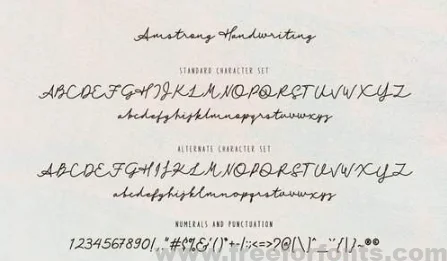 Amstrong Handwriting
STANDARD CHARACTER SET
ABCDEFGHIJKLMNOPQRSTUVWXYZ
abcdefghijklmnopqrstuvwxyz
ALTERNATE CHARACTER SET
ABCDEFGHIJKLMNOPQRSTUVWXYZ
abcdefghijklmnopqrstuvwxyz
NUMERALS AND PUNCTUATION
1234567890!,."#$%&'()*+-/:;<=>?@[\]^_`¨{|}~®©
www.freeforfonts.com